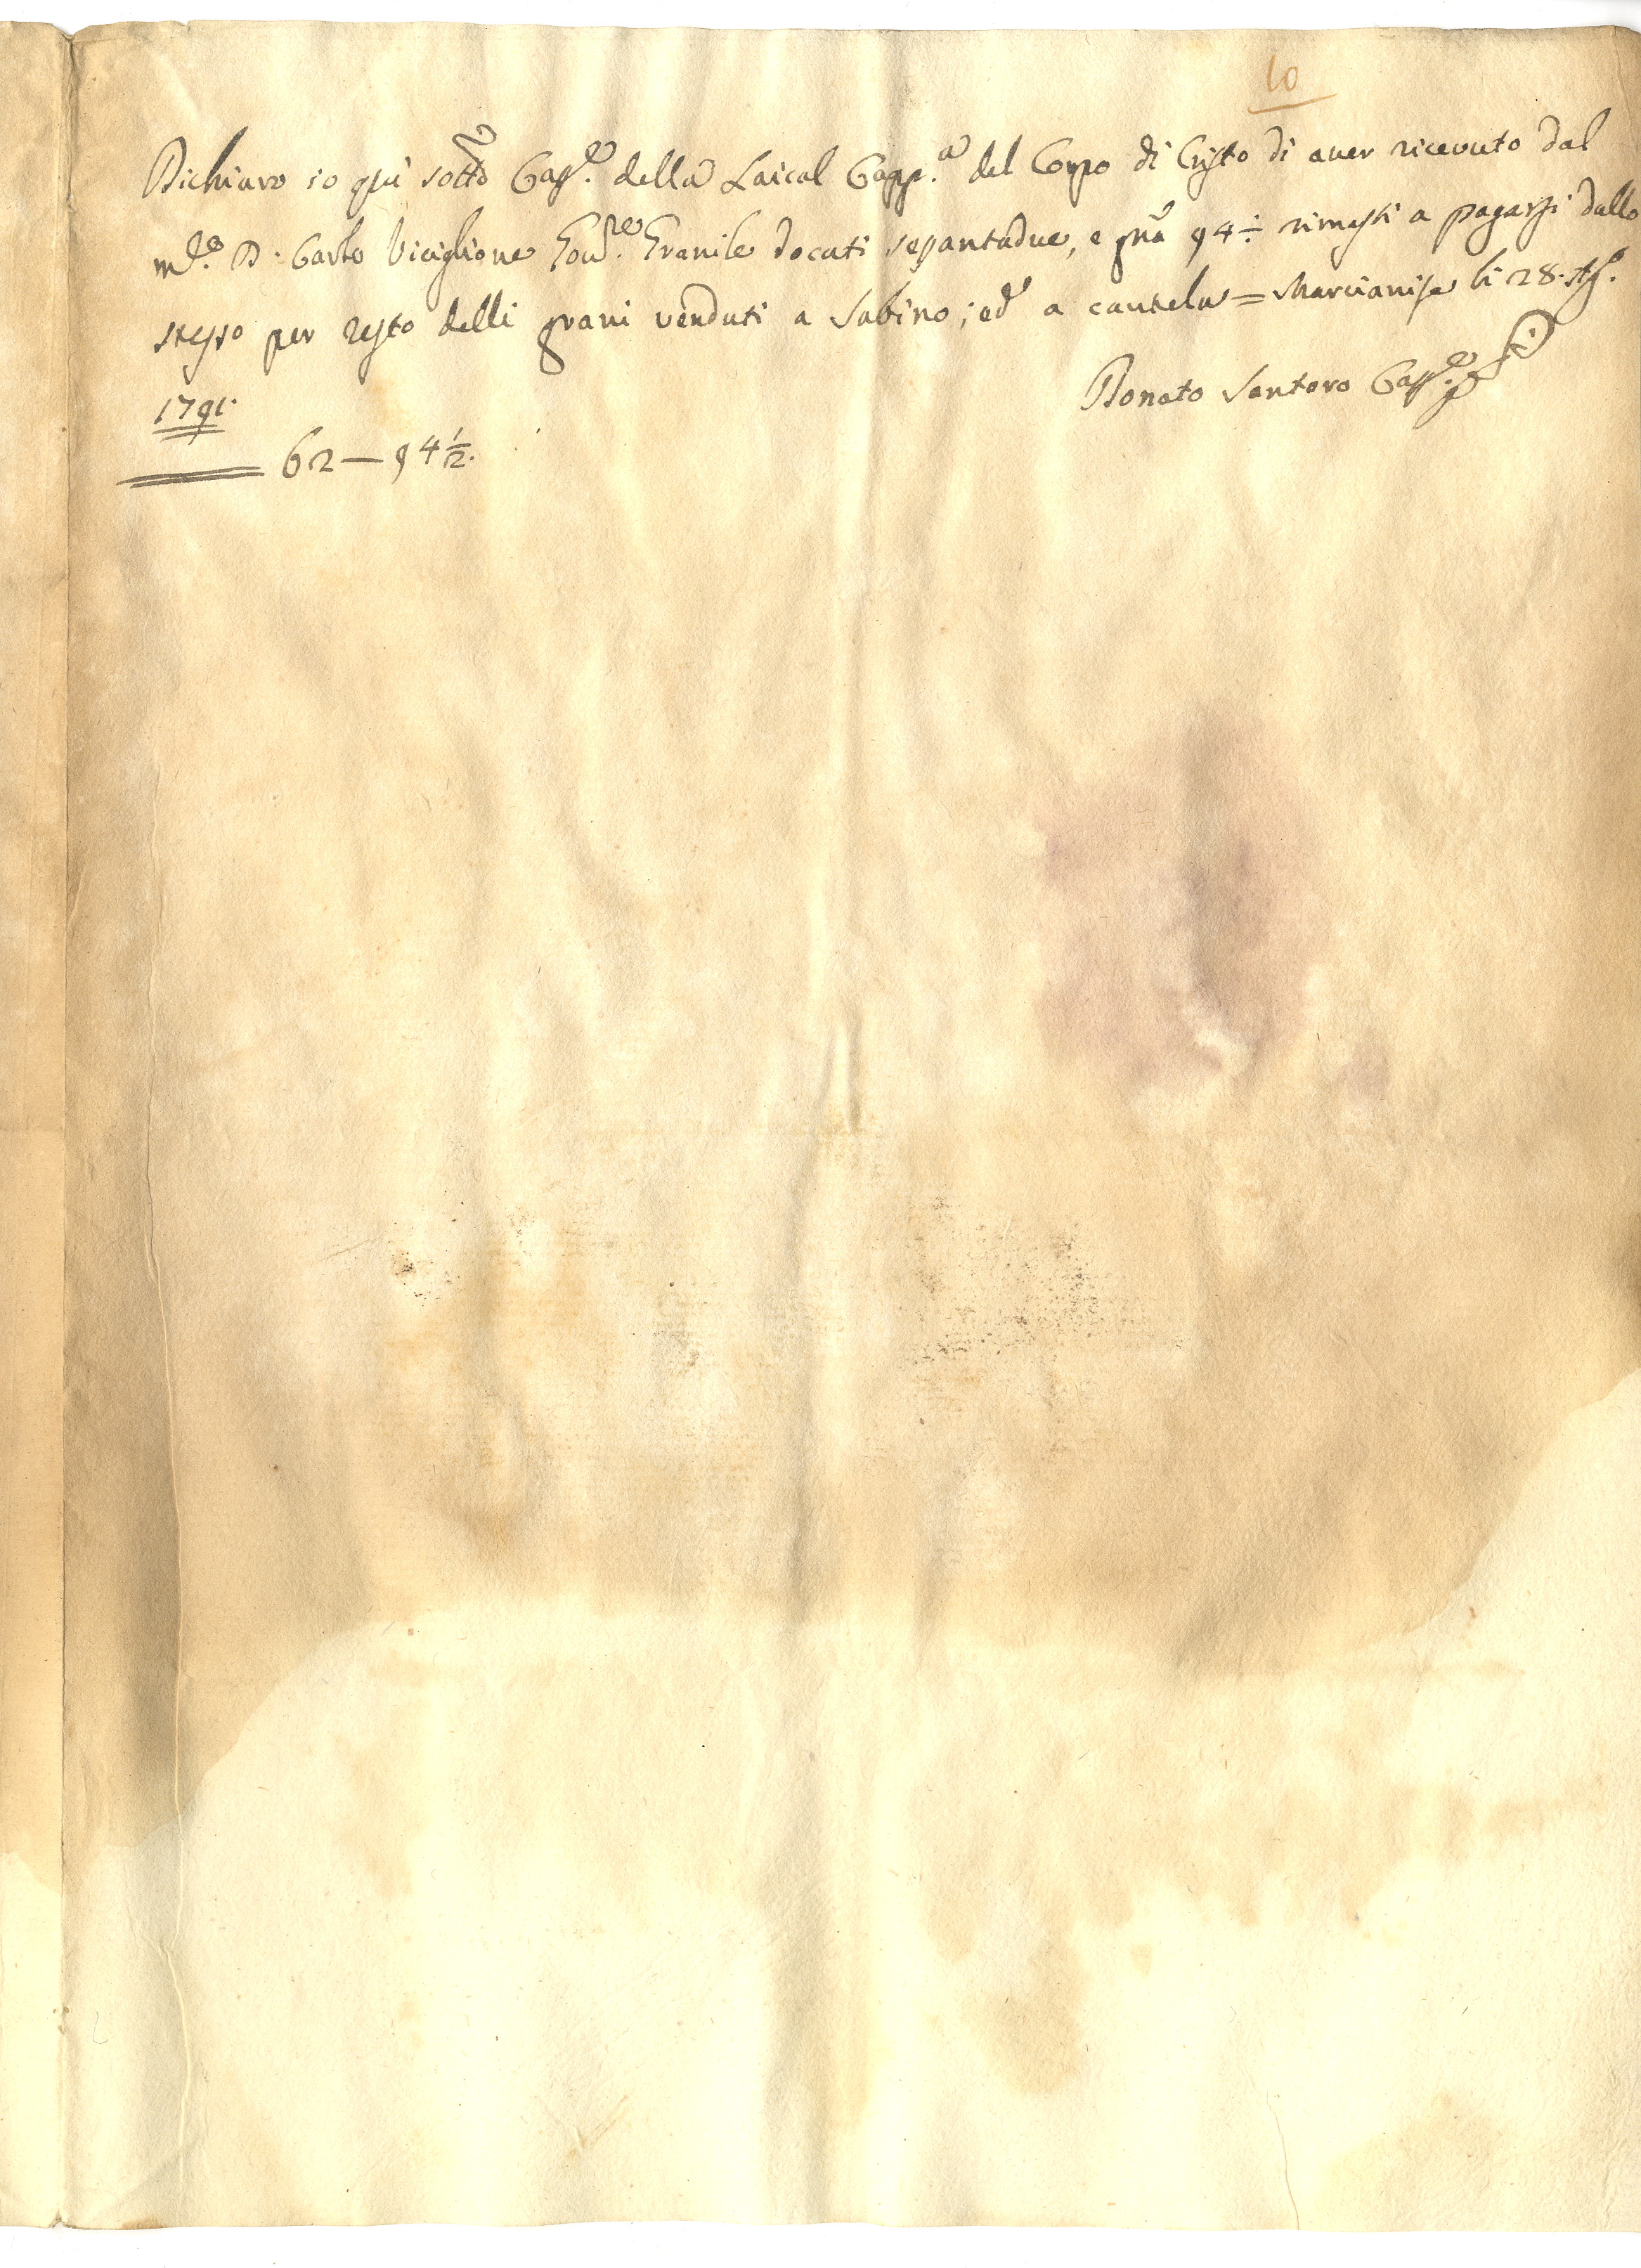 10
Dichiaro io qui sotto Cass.e della Laical Capp.a del Corpo di Cristo di aver ricevuto dal
D. Carlo Viciglione Gov.re Granile docati sessantadue, e gna 94 ½ rimasti a pagarsi dallo
stesso per resto delli grani venduti a Sabino; ed a cautela = Marcianise li 28. Ag.o
1791.
Donato Santoro Cass.e
62 — 94 ½.